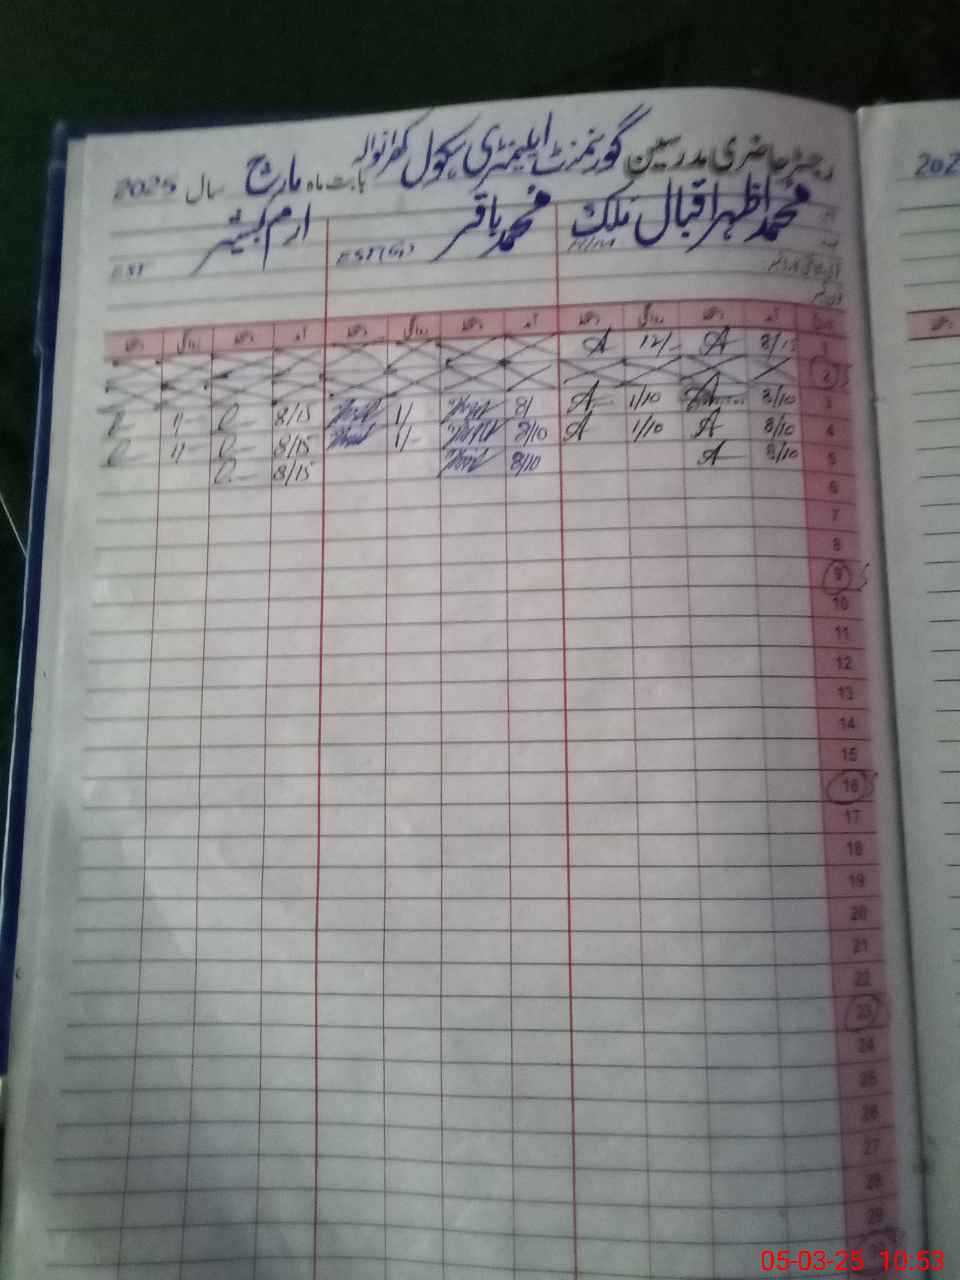 رجسٹر حاضری مدرسین گورنمنٹ ایلیمنٹری سکول کھرانوالہ بابت ماہ مارچ سال 2025
محمد اظہر اقبال ملک محمد باقر ارم کبشیر
EST(G) EST
آمد دستخط روانگی دستخط آمد دستخط روانگی دستخط آمد دستخط روانگی دستخط
1 8/15 A 12/- A
2
3 8/10 A 1/10 A 8/ 1/ 8/15 1/-
4 8/10 A 1/10 A 8/10 1/- 8/15 1/-
5 8/10 A 8/10 8/15
6
7
8
9
10
11
12
13
14
15
16
17
18
19
20
21
22
23
24
25
26
27
28
29
202
05-03-25 10:53